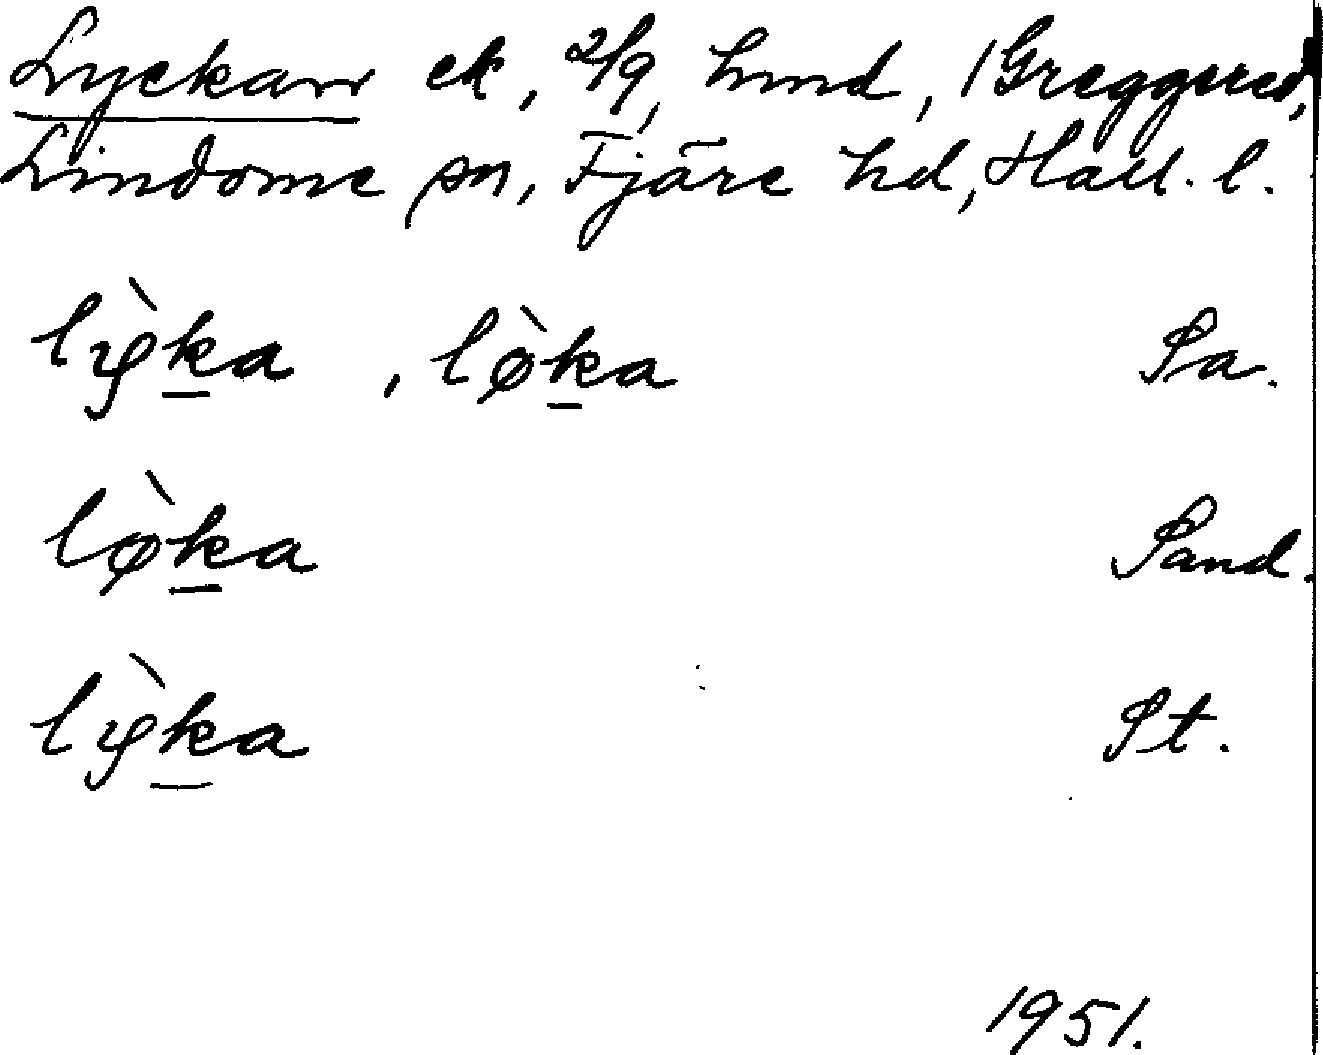 Lyckan ek, 2/9, hmd, / Greggered,
Lindome sn, Fjäre hd, Hall. l.
lỳka, lø̀ka Sa.
lø̀ka Sand.
lỳka St.
1951.